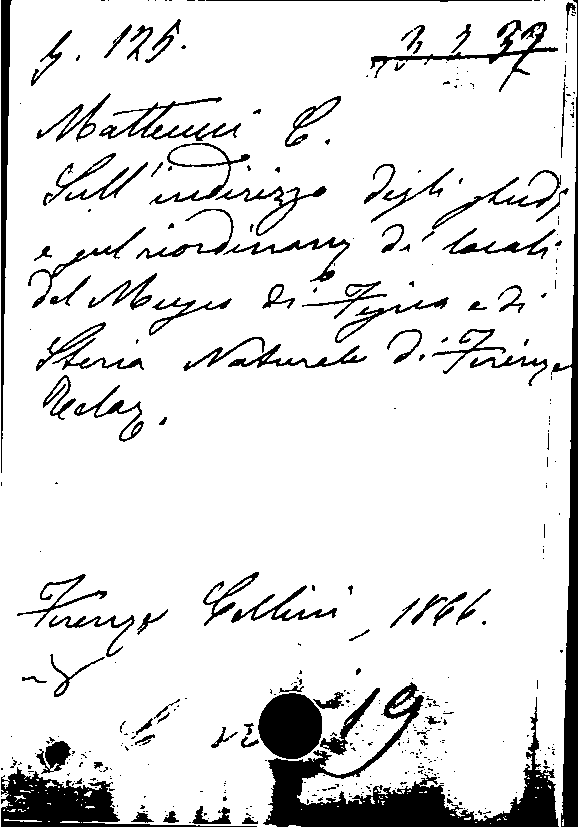 G. 125. 3. 2 37
Matteucci C.
Sull'indirizzo degli studj
e sul riordinam.to di locali
del Museo di Fisica e di
Storia Naturale di Firenze
Relaz.
Firenze Cellini, 1866.
-8
C 19